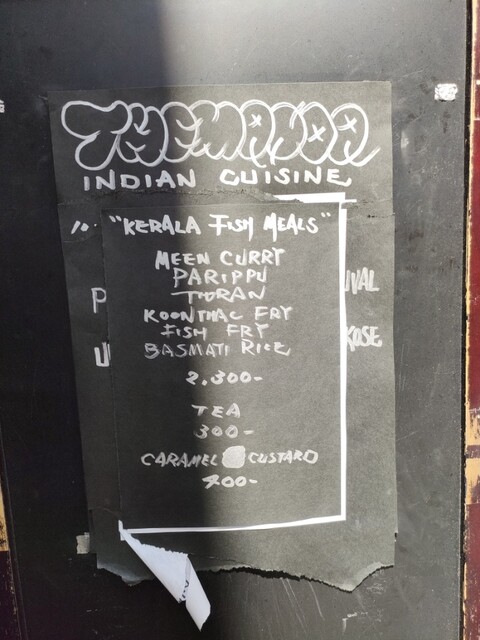 THEMANOA
INDIAN CUISINE
"KERALA FISH MEALS"
MEEN CURRY
PARIPPU
THORAN
KOONTHAL FRY
FISH FRY
BASMATI RICE
2,300-
TEA
300-
CARAMEL CUSTARD
400-
P
U
IVAL
KOSE